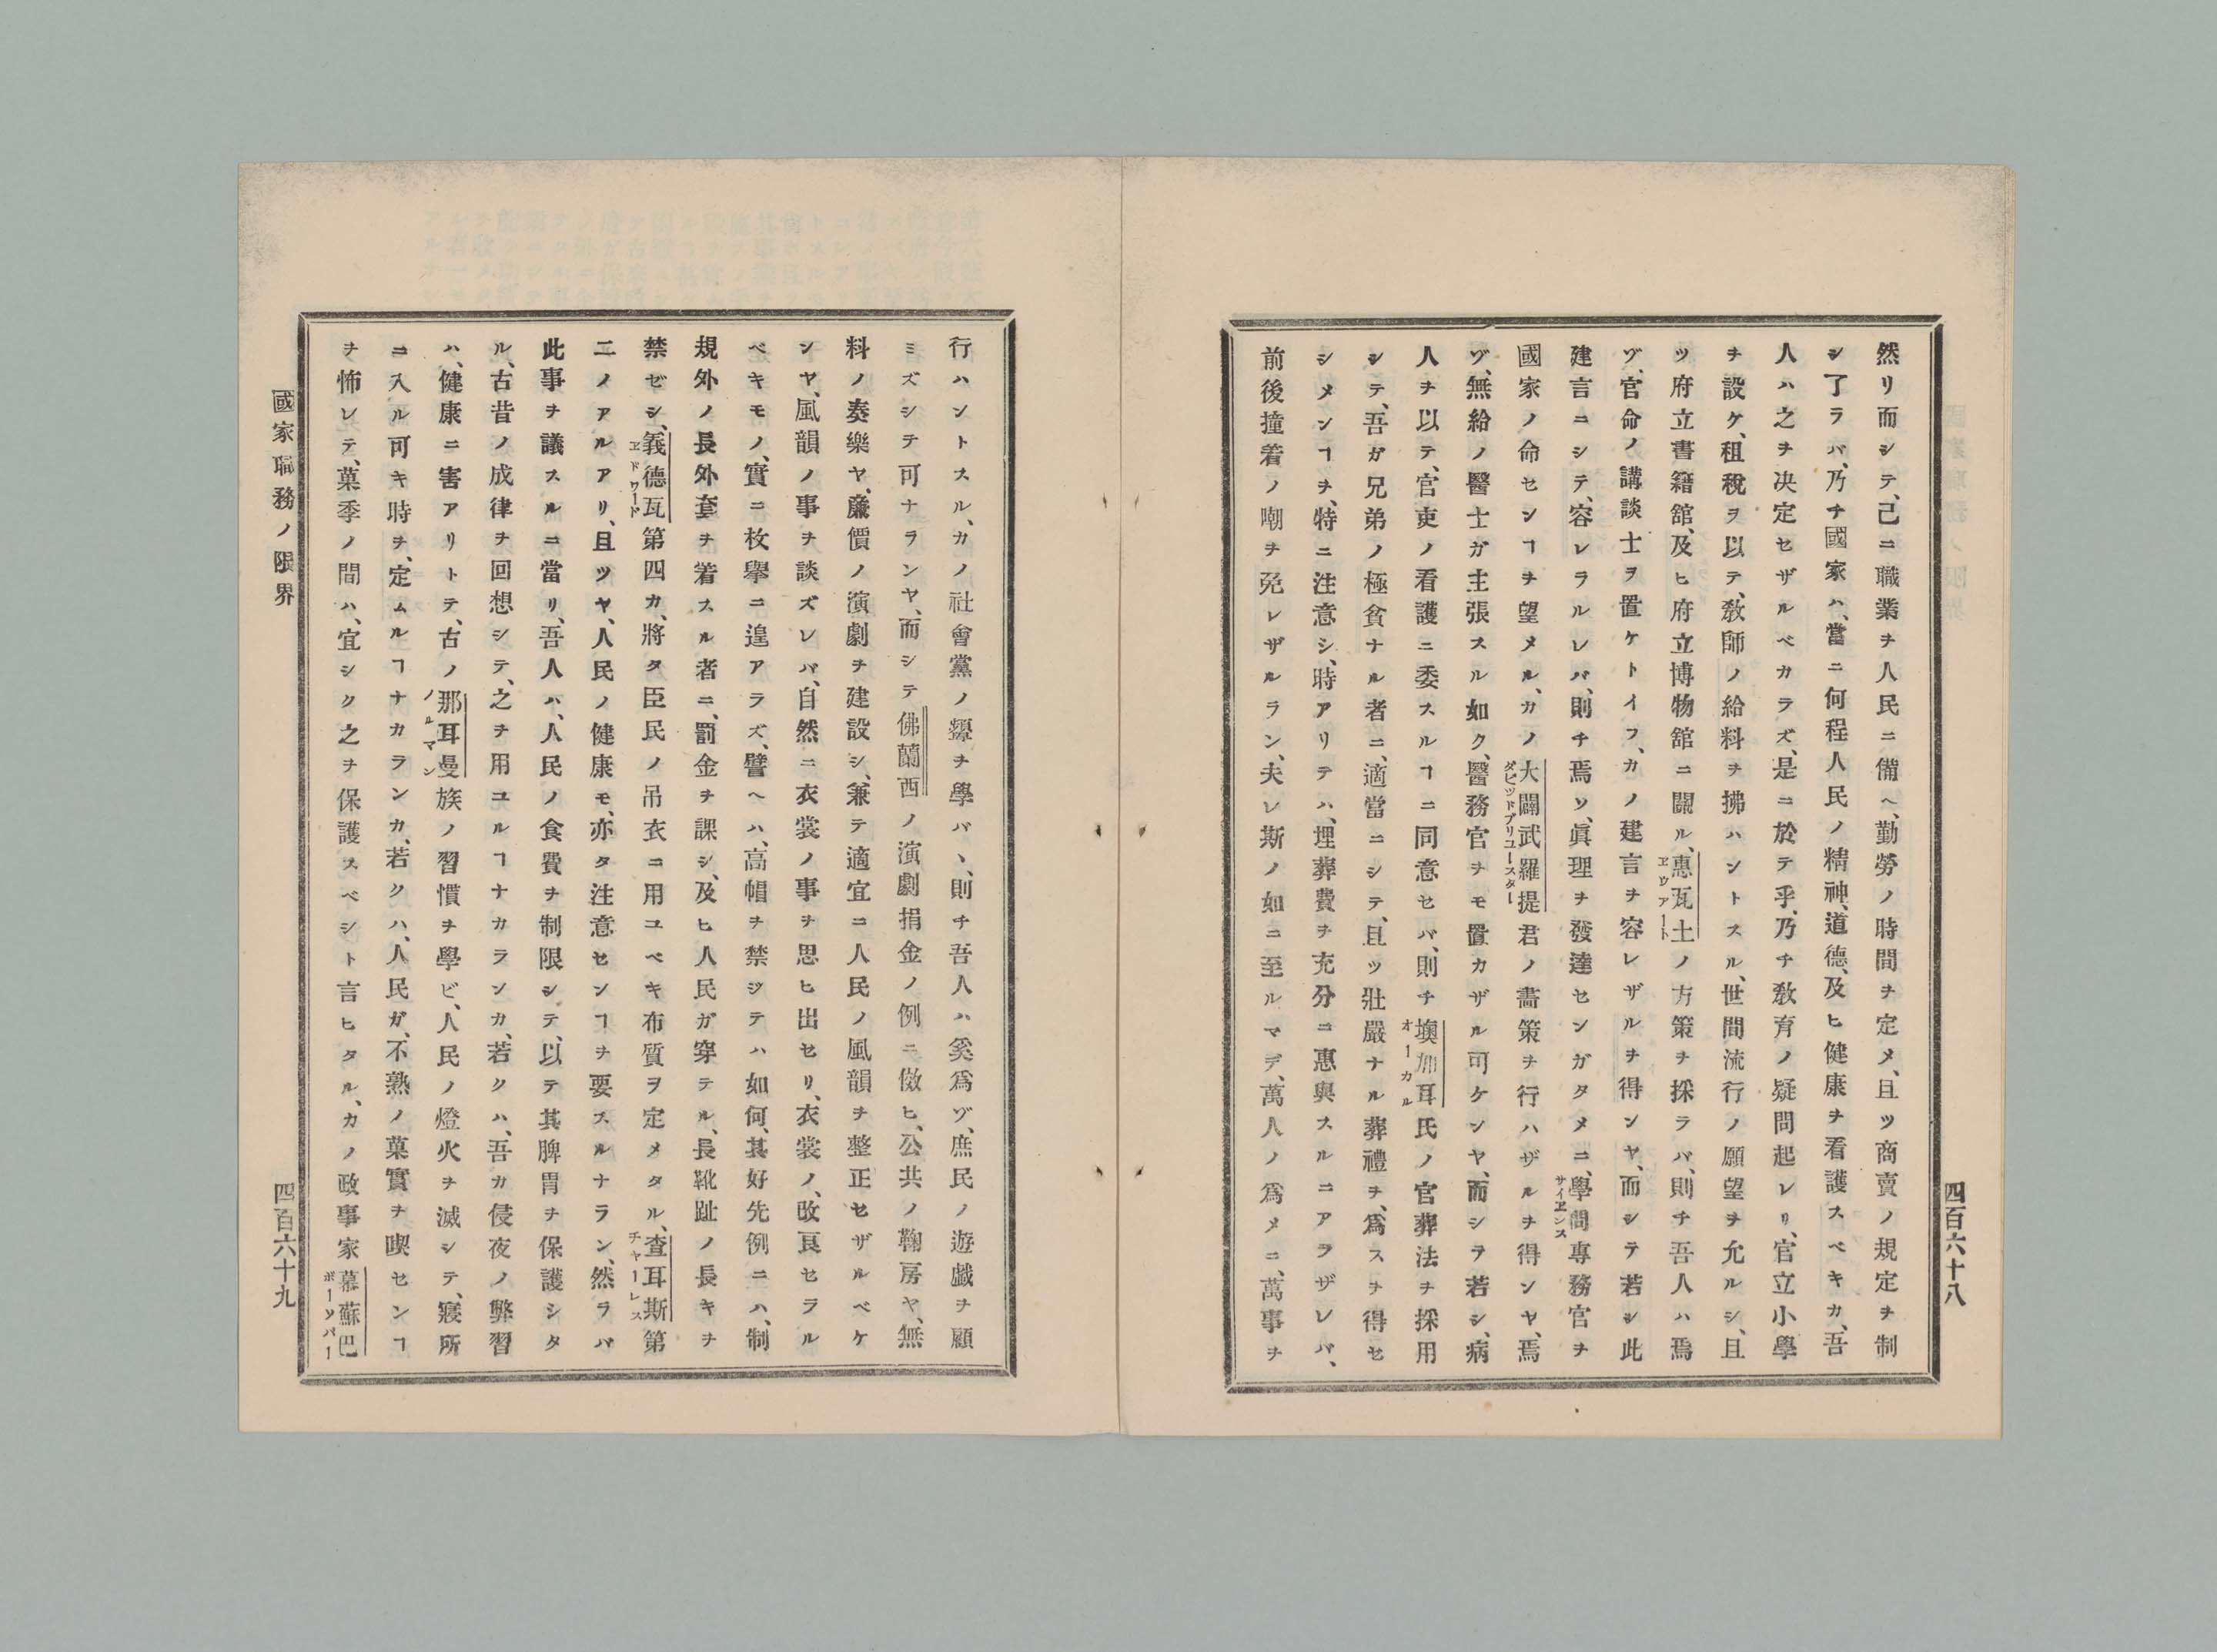 四百六十八
然リ而シテ、己ニ職業ヲ人民ニ備ヘ、勤勞ノ時間ヲ定メ、且ツ商賣ノ規定ヲ制
シ了ラバ、乃チ國家ハ、當ニ何程人民ノ精神、道德、及ヒ健康ヲ看護スベキカ、吾
人ハ之ヲ决定セザルベカラズ、是ニ於テ乎、乃チ敎育ノ疑問起レリ、官立小學
ヲ設ケ、租稅ヲ以テ、敎師ノ給料ヲ拂ハントスル、世間流行ノ願望ヲ允ルシ、且
ツ府立書籍舘、及ヒ府立博物舘ニ關ル、惠瓦土ノ方策ヲ採ラバ、則チ吾人ハ焉
ヱヴアート
ゾ、官命ノ講談士ヲ置ケトイフ、カノ建言ヲ容レザルヲ得ンヤ、而シテ若シ此
建言ニシテ、容レラルレバ、則チ焉ソ、眞理ヲ發達センガタメニ、學問專務官ヲ
サイヱンス
國家ノ命センヿヲ望メル、カノ大闢武羅提君ノ畵策ヲ行ハザルヲ得ンヤ、焉
ダビツドブリユースター
ゾ、無給ノ醫士ガ主張スル如ク、醫務官ヲモ置カザル可ケンヤ、而シヲ若シ、病
人ヲ以テ、官吏ノ看護ニ委スルヿニ同意セバ、則チ墺加耳氏ノ官葬法ヲ採用
オーカル
シテ、吾ガ兄弟ノ極貧ナル者ニ、適當ニシテ、且ツ壯嚴ナル葬禮ヲ、爲スヲ得セ
シメンヿヲ、特ニ注意シ、時アリテハ、埋葬費ヲ充分ニ惠與スルニアラザレバ、
前後撞着ノ嘲ヲ免レザルラン、夫レ斯ノ如ニ至ルマデ、萬人ノ爲メニ、萬事ヲ
行ハントスル、カノ社會黨ノ顰ヲ學バヽ、則チ吾人ハ奚爲ゾ、庶民ノ遊戯ヲ顧
ミズシテ可ナランヤ、而シテ佛蘭西ノ演劇捐金ノ例ニ傚ヒ、公共ノ鞠房ヤ、無
料ノ奏樂ヤ、廉價ノ演劇ヲ建設シ、兼テ適宜ニ人民ノ風韻ヲ整正セザルベケ
ンヤ、風韻ノ事ヲ談ズレバ、自然ニ衣裳ノ事ヲ思ヒ出セリ、衣裳ノ、改良セラル
ベキモノ、實ニ枚擧ニ遑アラズ、譬ヘハ、高帽ヲ禁ジテハ如何、其好先例ニハ、制
規外ノ長外套ヲ着スル者ニ、罰金ヲ課シ、及ヒ人民ガ穿テル、長靴趾ノ長キヲ
禁ゼシ、義德瓦第四カ、將タ臣民ノ吊衣ニ用ユベキ布質ヲ定メタル、査耳斯第
ヱドワード
チヤーレス
二ノアルアリ、且ツヤ、人民ノ健康モ、亦タ注意センヿヲ要スルナラン、然ラバ
此事ヲ議スルニ當リ、吾人ハ、人民ノ食費ヲ制限シテ、以テ其脾胃ヲ保護シタ
ル、古昔ノ成律ヲ回想シテ、之ヲ用ユルヿナカランカ、若クハ、吾カ侵夜ノ弊習
ハ、健康ニ害アリトテ、古ノ那耳曼族ノ習慣ヲ學ビ、人民ノ燈火ヲ滅シテ、寢所
ノルマン
ニ入ル可キ時ヲ、定ムルヿナカランカ、若クハ、人民ガ、不熟ノ菓實ヲ喫センヿ
ヲ怖レテ、菓季ノ間ハ、宜シク之ヲ保護スベシト言ヒタル、カノ政事家慕蘇巴
ボーソバー
國家職務ノ限界
四百六十九